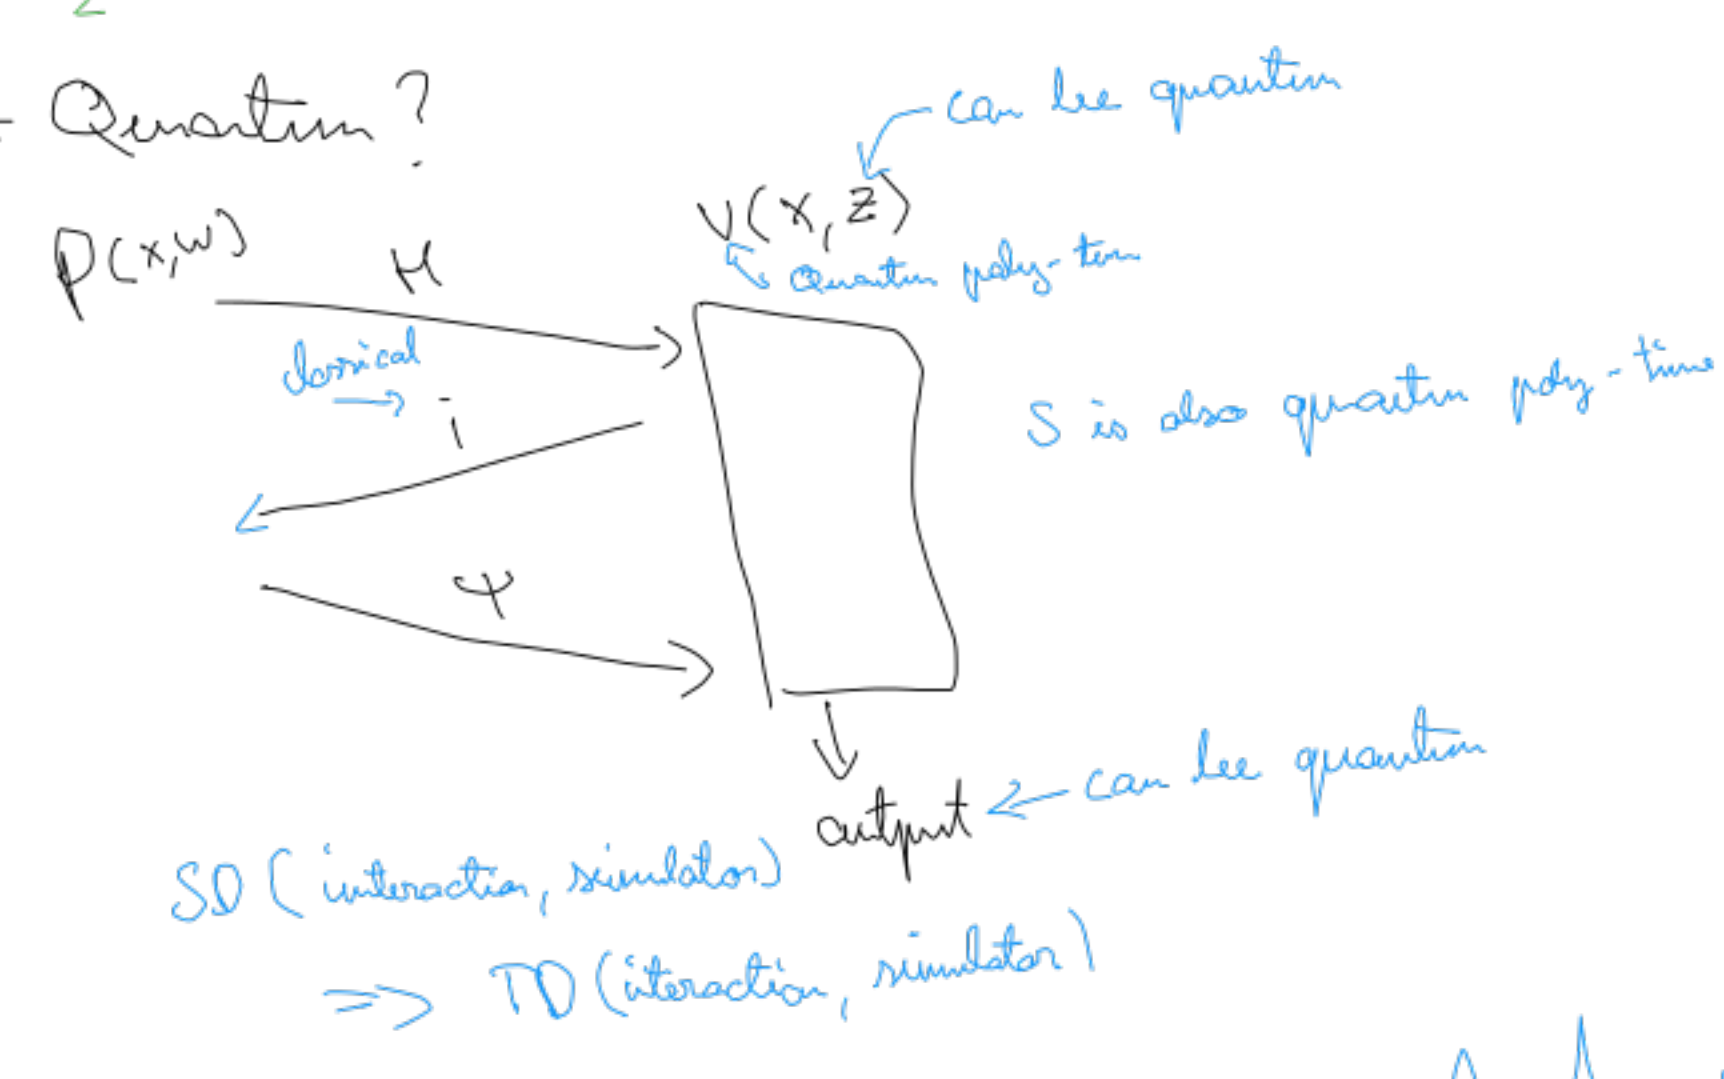 - Quantum?
can be quantum
P(x,w)
V(x,z)
H
Quantum poly-time
classical
i
S is also quantum poly-time
ψ
output
can be quantum
SD (interaction, simulator)
=> TD (interaction, simulator)